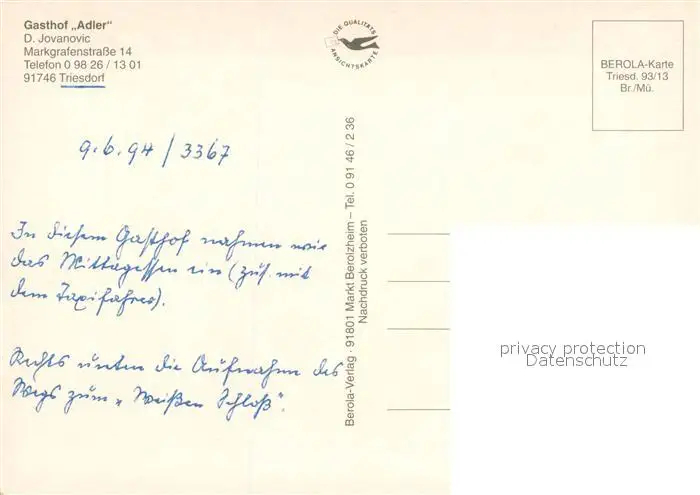 Gasthof „Adler"
D. Jovanovic
Markgrafenstraße 14
Telefon 0 98 26 / 13 01
91746 Triesdorf
DIE QUALITÄTS
ANSICHTSKARTE
BEROLA-Karte
Triesd. 93/13
Br./Mü.
9.6.94 / 3367
In diesem Gasthof nahmen wir
das Mittagessen ein (zus. mit
dem Taxifahrer).
Rechts unten die Aufnahme des
Wegs zum „Weißen Schloß".
Berola-Verlag · 91801 Markt Berolzheim – Tel. 0 91 46 / 2 36
Nachdruck verboten
privacy protection
Datenschutz